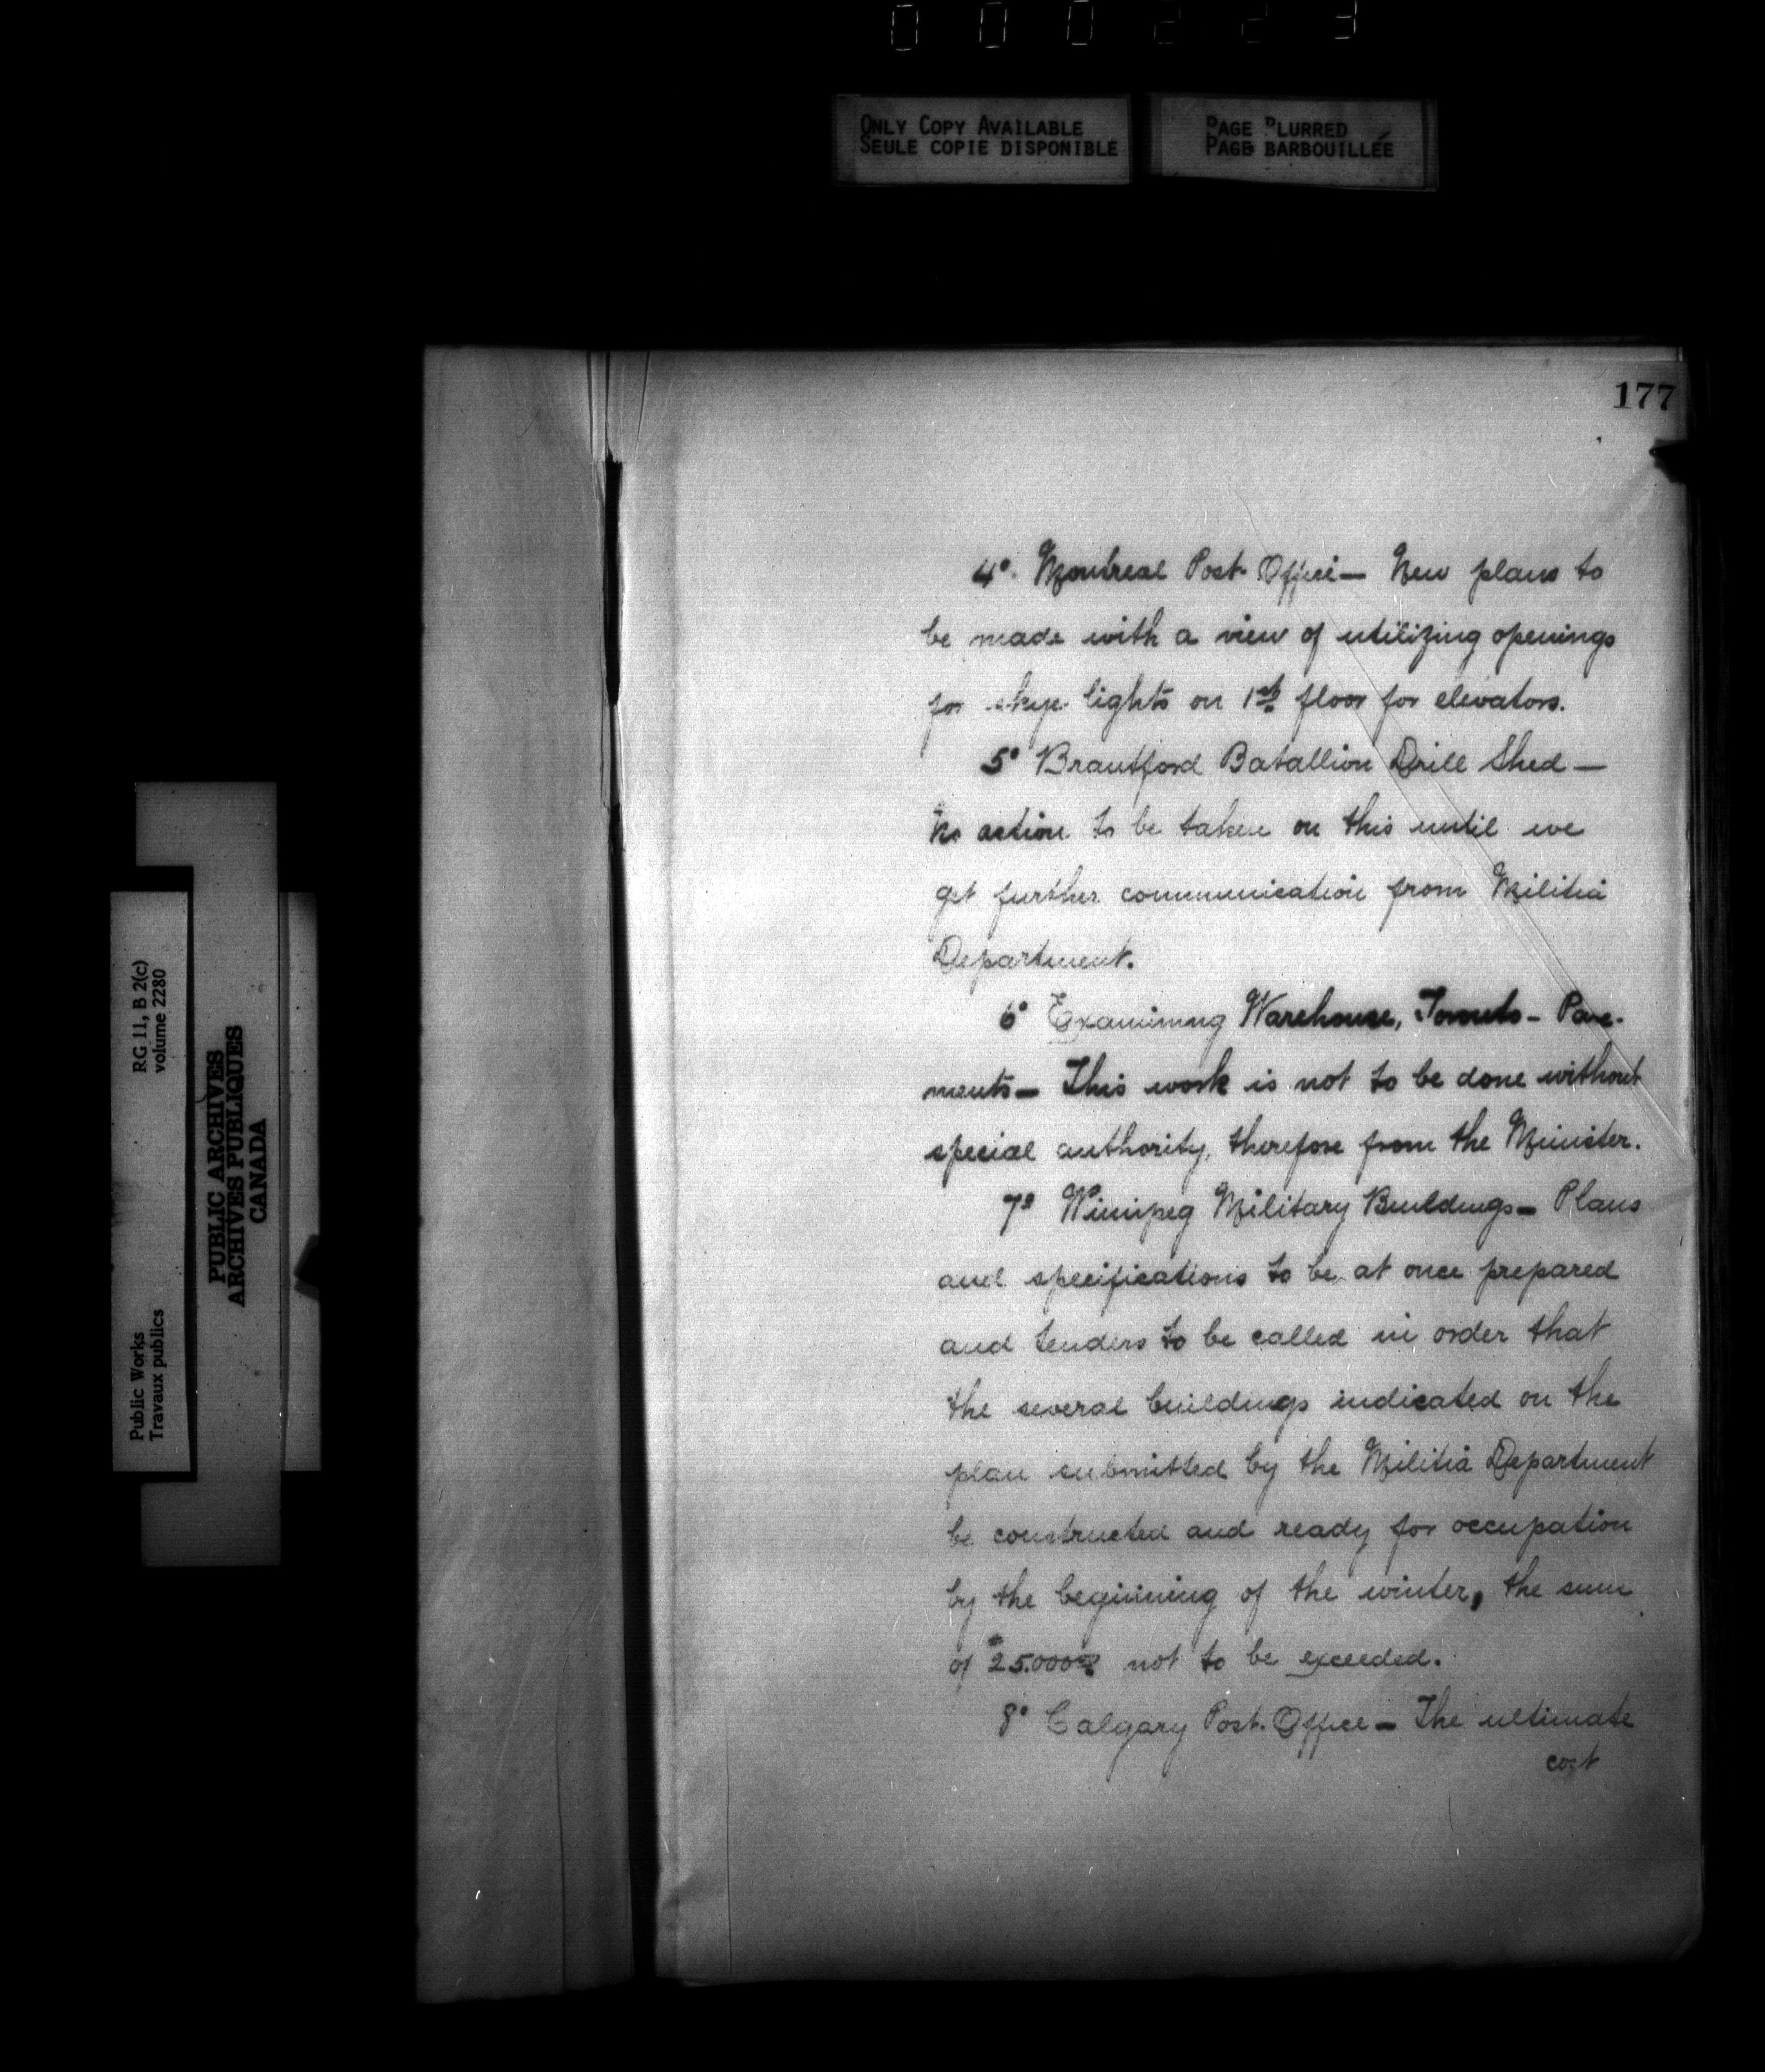 000223
ONLY COPY AVAILABLE
SEULE COPIE DISPONIBLE
PAGE BLURRED
PAGE BARBOUILLÉE
177
4° Montreal Post Office — New plans to
be made with a view of utilizing openings
for skye lights on 1st floor for elevators.
5° Brantford Batallion Drill Shed —
No action to be taken on this until we
get further communication from Militia
Department.
6° Examining Warehouse, Toronto — Pave-
ments — This work is not to be done without
special authority, therefore from the Minister.
7° Winnipeg Military Buildings — Plans
and specifications to be at once prepared
and tenders to be called in order that
the several buildings indicated on the
plan submitted by the Militia Department
be constructed and ready for occupation
by the beginning of the winter, the sum
of $25.000 not to be exceeded.
8° Calgary Post. Office — The ultimate
cost
RG 11, B 2(c)
volume 2280
Public Works
Travaux publics
PUBLIC ARCHIVES
ARCHIVES PUBLIQUES
CANADA